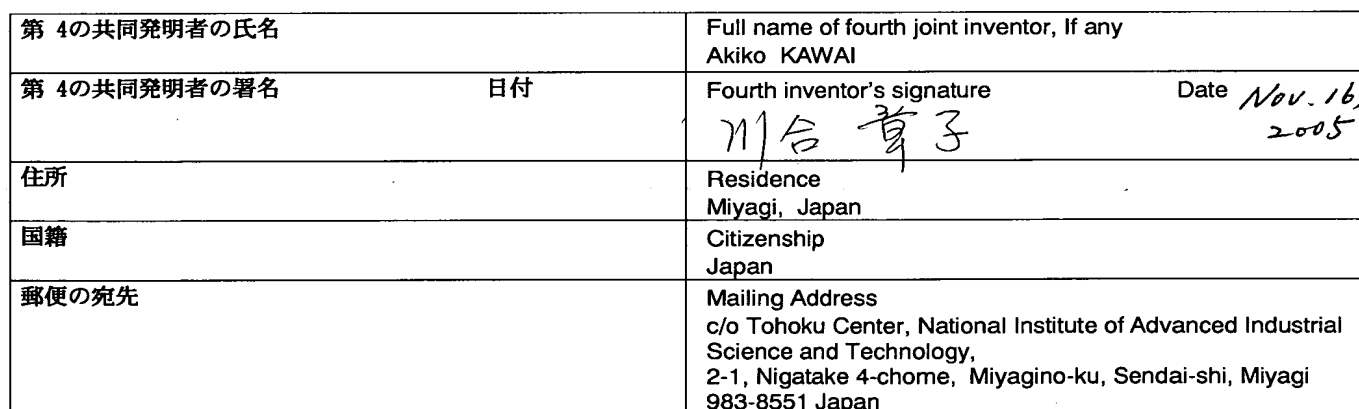 第 4の共同発明者の氏名
Full name of fourth joint inventor, If any
Akiko KAWAI
第 4の共同発明者の署名 日付
Fourth inventor's signature Date Nov. 16,
2005
川合 章子
住所
Residence
Miyagi, Japan
国籍
Citizenship
Japan
郵便の宛先
Mailing Address
c/o Tohoku Center, National Institute of Advanced Industrial
Science and Technology,
2-1, Nigatake 4-chome, Miyagino-ku, Sendai-shi, Miyagi
983-8551 Japan